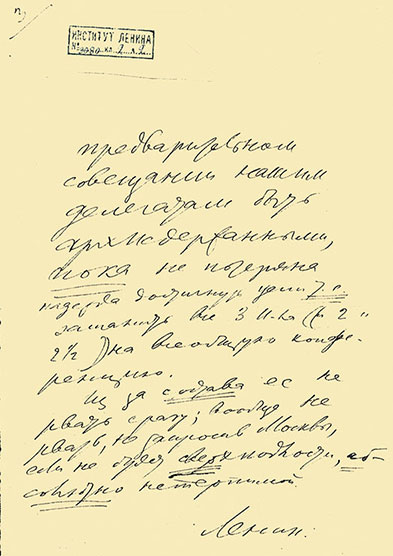 ИНСТИТУТ ЛЕНИНА
предварительном
совещании нашим
делегатам быть
архисдержанными,
пока не потеряна
надежда достигнуть цели т. е.
заманить все 3 И-ла (и 2 и
2 1/2) на всеобщую конфе-
ренцию.
Из за состава ее не
рвать сразу; вообще не
рвать, не запросив Москвы,
если не будет подлости, аб-
солютно нетерпимой.
Ленин.